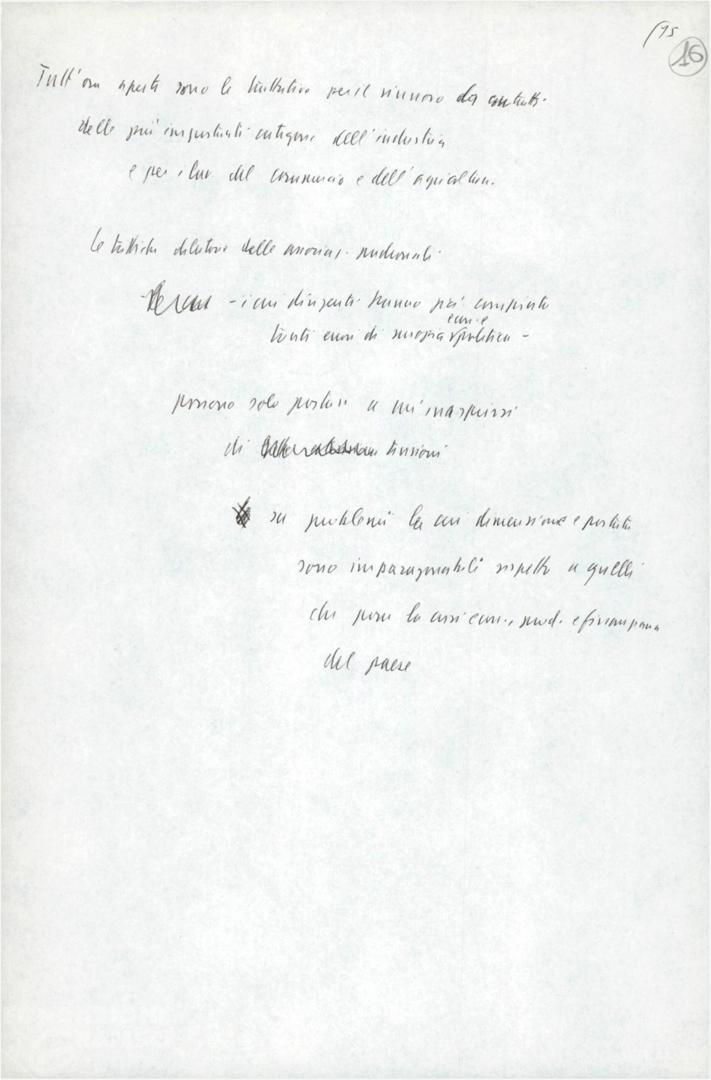 /15
16
Tutt'ora aperte sono le trattative per il rinnovo dei contratti
delle più importanti categorie dell'industria
e per i lav. del commercio e dell'agricoltura.
le tattiche dilatorie delle associaz. padronali
- i cui dirigenti hanno già compiuto
econ. e
tanti errori di miopia politica -
possono solo portare a un'inasprirsi
di tensioni
su problemi la cui dimensione e portata
sono imparagonabili rispetto a quelli
che pone la crisi econ., prod. e finanziaria
del paese